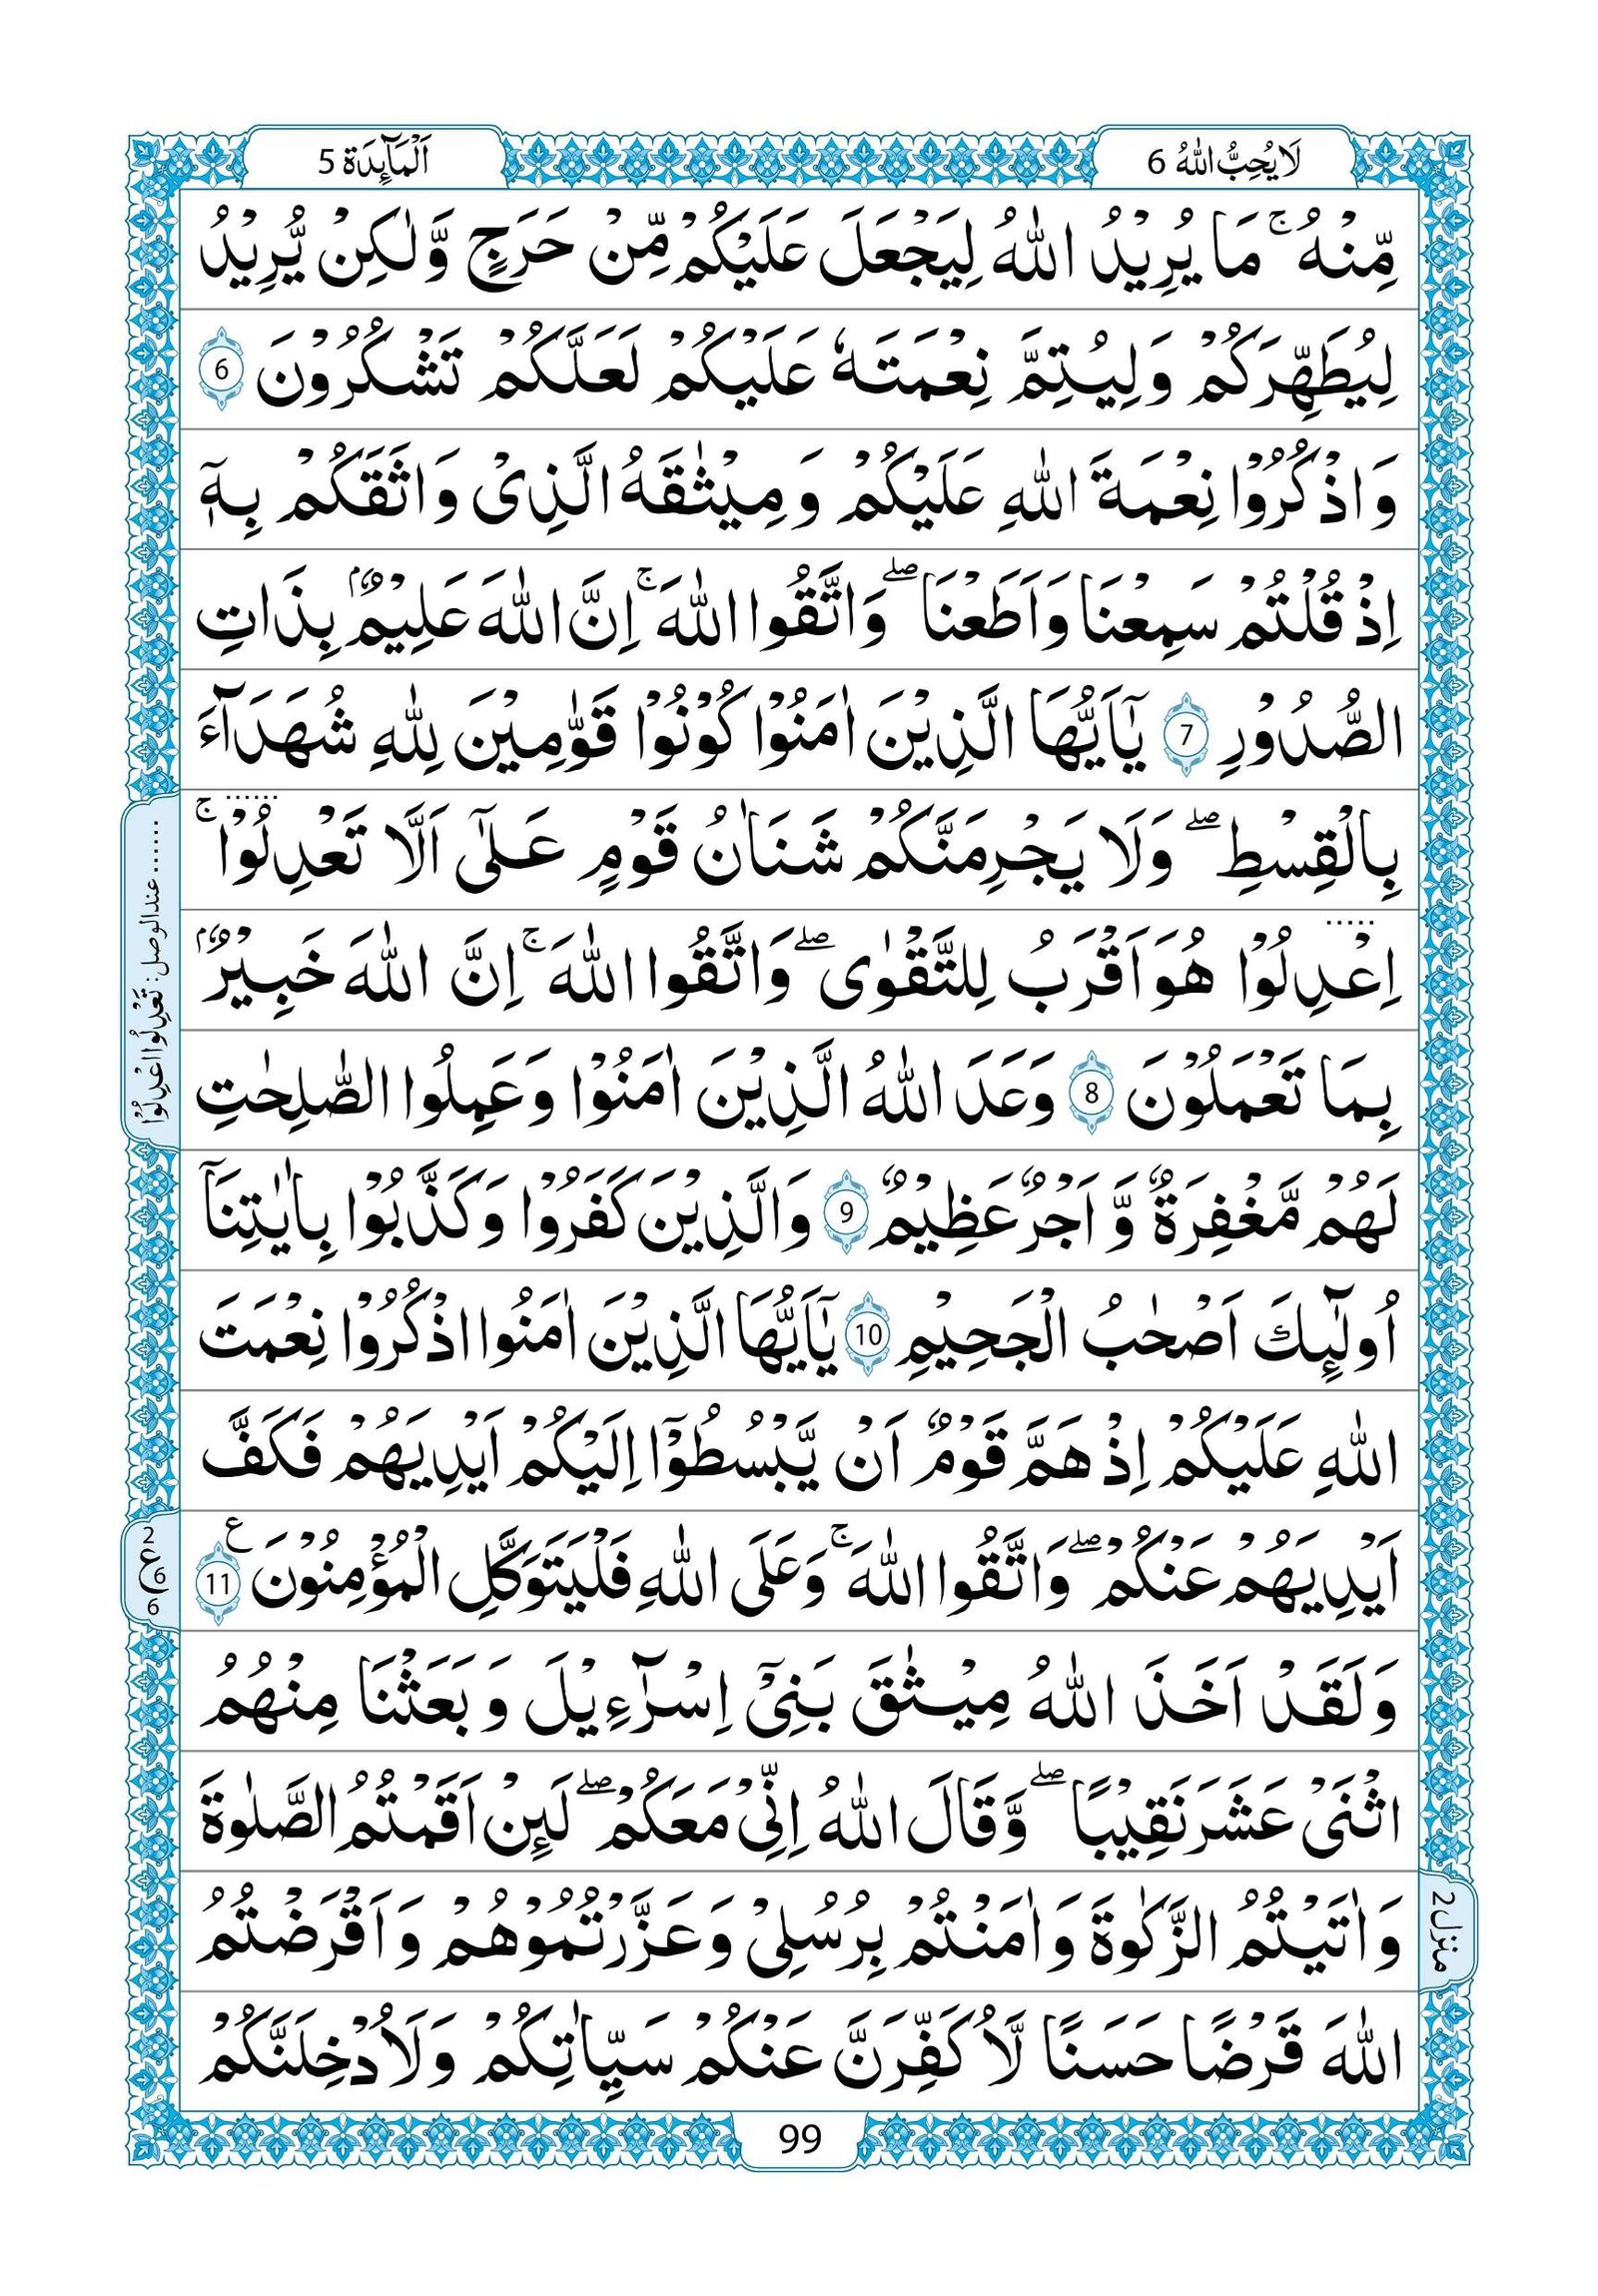 لَا يُحِبُّ اللّٰهُ 6
اَلْمَآئِدَة 5
مِّنْهُ ۚ مَا يُرِيْدُ اللّٰهُ لِيَجْعَلَ عَلَيْكُمْ مِّنْ حَرَجٍ وَّلٰكِنْ يُّرِيْدُ
لِيُطَهِّرَكُمْ وَلِيُتِمَّ نِعْمَتَهٗ عَلَيْكُمْ لَعَلَّكُمْ تَشْكُرُوْنَ 6
وَاذْكُرُوْا نِعْمَةَ اللّٰهِ عَلَيْكُمْ وَمِيْثٰقَهُ الَّذِىْ وَاثَقَكُمْ بِهٖٓ
اِذْ قُلْتُمْ سَمِعْنَا وَاَطَعْنَا ۖ وَاتَّقُوا اللّٰهَ ۚ اِنَّ اللّٰهَ عَلِيْمٌۢ بِذَاتِ
الصُّدُوْرِ 7 يٰٓاَيُّهَا الَّذِيْنَ اٰمَنُوْا كُوْنُوْا قَوّٰمِيْنَ لِلّٰهِ شُهَدَآءَ
بِالْقِسْطِ ۖ وَلَا يَجْرِمَنَّكُمْ شَنَاٰنُ قَوْمٍ عَلٰٓى اَلَّا تَعْدِلُوْا ۚ
اِعْدِلُوْا هُوَ اَقْرَبُ لِلتَّقْوٰى ۖ وَاتَّقُوا اللّٰهَ ۚ اِنَّ اللّٰهَ خَبِيْرٌۢ
بِمَا تَعْمَلُوْنَ 8 وَعَدَ اللّٰهُ الَّذِيْنَ اٰمَنُوْا وَعَمِلُوا الصّٰلِحٰتِ
لَهُمْ مَّغْفِرَةٌ وَّاَجْرٌ عَظِيْمٌ 9 وَالَّذِيْنَ كَفَرُوْا وَكَذَّبُوْا بِاٰيٰتِنَآ
اُولٰٓئِكَ اَصْحٰبُ الْجَحِيْمِ 10 يٰٓاَيُّهَا الَّذِيْنَ اٰمَنُوا اذْكُرُوْا نِعْمَتَ
اللّٰهِ عَلَيْكُمْ اِذْ هَمَّ قَوْمٌ اَنْ يَّبْسُطُوْٓا اِلَيْكُمْ اَيْدِيَهُمْ فَكَفَّ
اَيْدِيَهُمْ عَنْكُمْ ۖ وَاتَّقُوا اللّٰهَ ۚ وَعَلَى اللّٰهِ فَلْيَتَوَكَّلِ الْمُؤْمِنُوْنَ 11 ع
وَلَقَدْ اَخَذَ اللّٰهُ مِيْثٰقَ بَنِىْٓ اِسْرَآءِيْلَ وَبَعَثْنَا مِنْهُمُ
اثْنَىْ عَشَرَ نَقِيْبًا ۖ وَّقَالَ اللّٰهُ اِنِّىْ مَعَكُمْ ۖ لَئِنْ اَقَمْتُمُ الصَّلٰوةَ
وَاٰتَيْتُمُ الزَّكٰوةَ وَاٰمَنْتُمْ بِرُسُلِىْ وَعَزَّرْتُمُوْهُمْ وَاَقْرَضْتُمُ
اللّٰهَ قَرْضًا حَسَنًا لَّاُكَفِّرَنَّ عَنْكُمْ سَيِّاٰتِكُمْ وَلَاُدْخِلَنَّكُمْ
...... عندالوصل: تَعْدِلُوا اعْدِلُوْا
2
ع 6
6
منزل 2
99